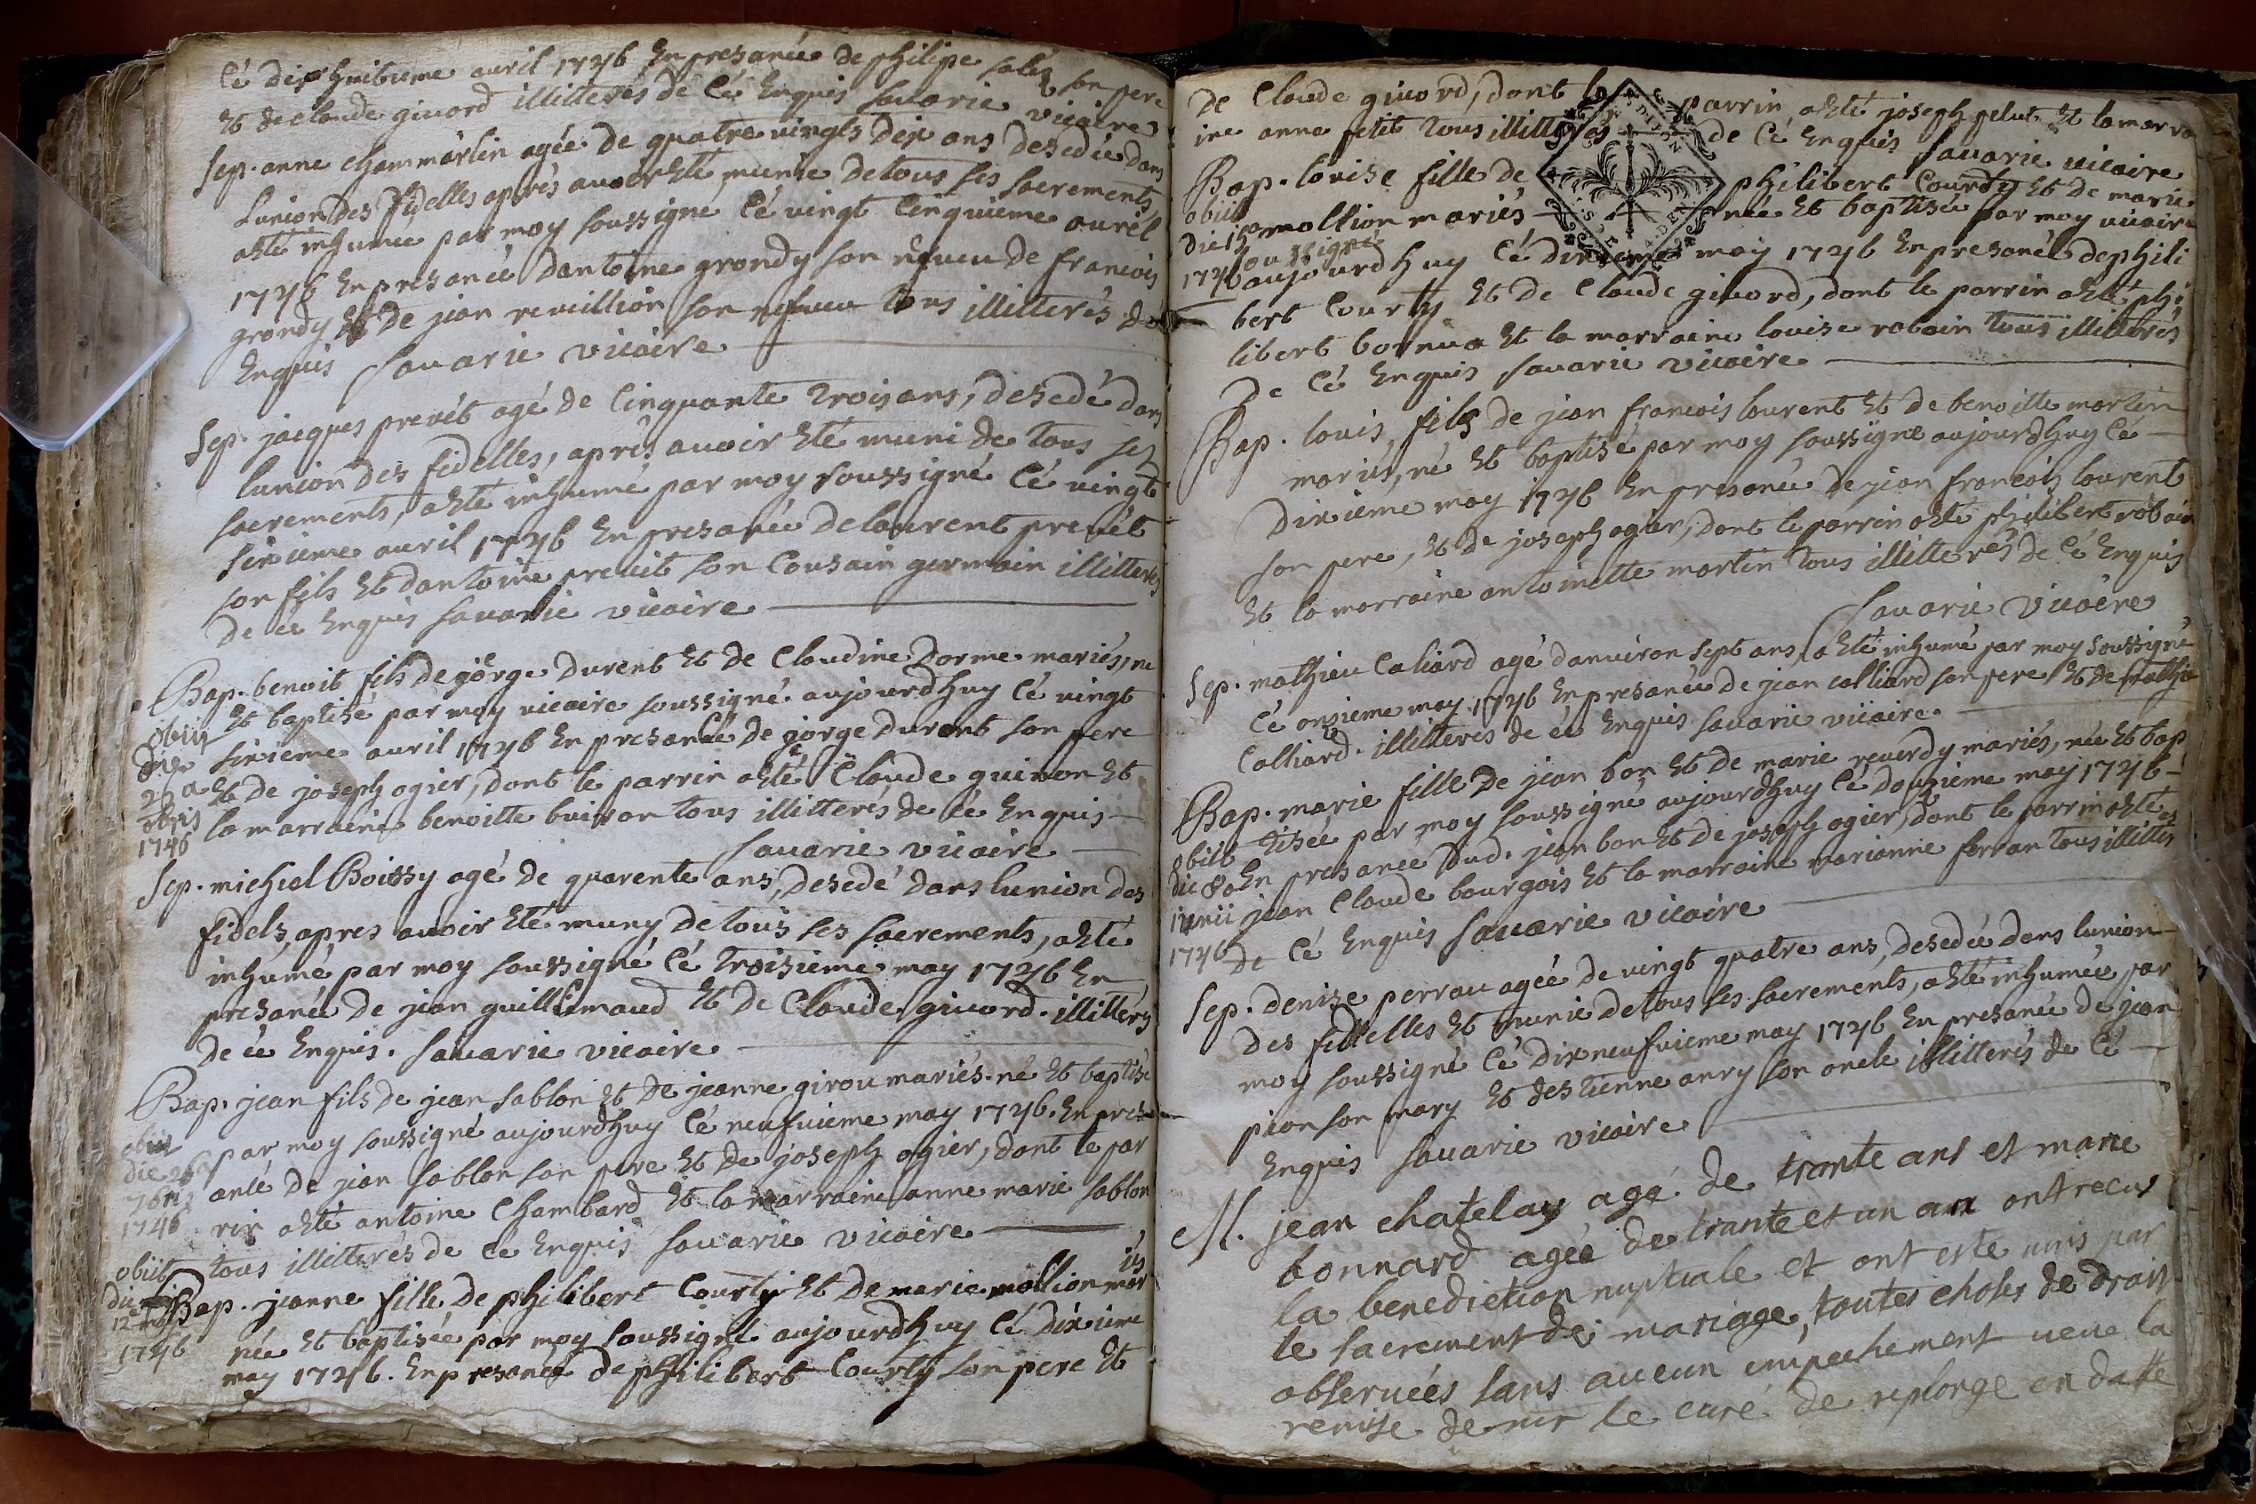 Cé dix huitieme auril 1746 En presance de philipe salé son pere
Et de claude giuord illitterés de Cé Enquis sauarie vicaire
Sep. anne chammartin agée de quatre vingts dix ans desedée dans
Lunion des fidelles aprés auoir Eté munie de tous ses sacrements
aEté inhumée par moy soussigné Cé vingt Cinquieme auril
1746 En presance dantoine grondy son neueu de francois
grondy Et de jean reuillion son nepueu tous illitterés de
Enquis sauarie vicaire
Sep. jacques preuét agé de Cinquante trois ans, desedé dans
lunion des fidelles, aprés auoir Eté muni de tous ses
sacrements, aEté inhumé par moy soussigné Cé vingt
sixieme auril 1746 En presance de laurent preuét
son fils Et dantoine preuét son Cousain germain illitterés
de ce Enquis sauarie vicaire
Bap. benoit fils de jorge durent Et de Claudine dorme mariés, né
Et baptisé par moy vicaire soussigné aujourdhuy Cé vingt
sixieme auril 1746 En presance de jorge durent son pere
Et de joseph ogier, dont le parrin aEté Claude guinon Et
la marraine benoitte buison tous illitterés de ce Enquis
sauarie vicaire
obiit
die
29 a
obris
1746
Sep. michel Boissy agé de quarente ans, desedé dans lunion des
fidels, apres auoir Eté muny de tous ses sacrements, aEté
inhumé par moy soussigné Cé troisieme may 1746 En
presance de jean guillimaud Et de Claude giuord. illitterés
de ce Enquis. sauarie vicaire
Bap. jean fils de jean sablon Et de jeanne girou mariés. né Et baptisé
par moy soussigné aujourdhuy Cé neufuieme may 1746. En pres
ance de jean sablon son pere Et de joseph ogier, dont le par
rin aEté antoine Chambard Et la marraine anne marie sablon
tous illitterés de ce Enquis sauarie vicaire
obiit
die 26
7bris
1746
Bap. jeanne fille de philibert Courty Et de marie mollion mar
iés
née Et baptisée par moy soussigné aujourdhuy Cé dixieme
may 1746. En presance de philibert Courty son pere Et
obiit
die
12
1746
de Claude giuord, dont le parrin aEté joseph pelut Et la marra
ine anne petit tous illitterés de Cé Enquis sauarie vicaire
Bap. louise fille de philibert Courty Et de marie
mollion mariés née Et baptisée par moy vicaire
soussigné
aujourdhuy Cé dixieme may 1746 En presance de phili
bert Courty Et de Claude giuord, dont le parrin aEté phi
libert bornua Et la marraine louise robain tous illitterés
de Cé Enquis sauarie vicaire
obiit
die 12
1746
Bap. louis, fils de jean francois lourent Et de benoitte martin
mariés, né Et baptisé par moy soussigné aujourdhuy Cé
dixieme may 1746 En presance de jean francois lourent
son pere, Et de joseph ogier, dont le parrin aEté philibert robain
Et la marraine antoinette martin tous illitterés de Cé Enquis
sauarie vicaire
Sep. mathieu Caliard agé danuiron sept ans, aEté inhumé par moy soussigné
Cé onzieme may 1746 En presance de jean calliard son pere Et de
Calliard. illitterés de ce Enquis sauarie vicaire.
Bap. marie fille de jean bon Et de marie reuerdy mariés, née Et bap
tisée par moy soussigné aujourdhuy Cé douzieme may 1746
En presance dud. jean bon Et de joseph ogier, dont le parrin aEté
jean Claude bourgois Et la marraine marianne ferran tous illitterés
de Cé Enquis sauarie vicaire
obiit
die 8a
junii
1746
Sep. denise perrau agée de vingt quatre ans, desedée dans lunion
des fidelles Et munie de tous ses sacrements, aEté inhumée par
moy soussigné Cé dix neufuieme may 1746 En presance de jean
pion son mary Et destienne anry son oncle illitterés de Cé
Enquis sauarie vicaire
M. jean chatelay agé de trante ans et marie
bonnard agée de trante et un an ont recus
la benediction nuptiale et ont este unis par
le sacrement de mariage, toutes choses de droit
obseruées sans aucun empechement ueue la
remise de mr le curé de replonge en datte